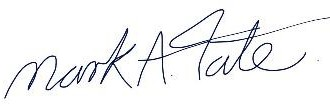 Mark A. Tate